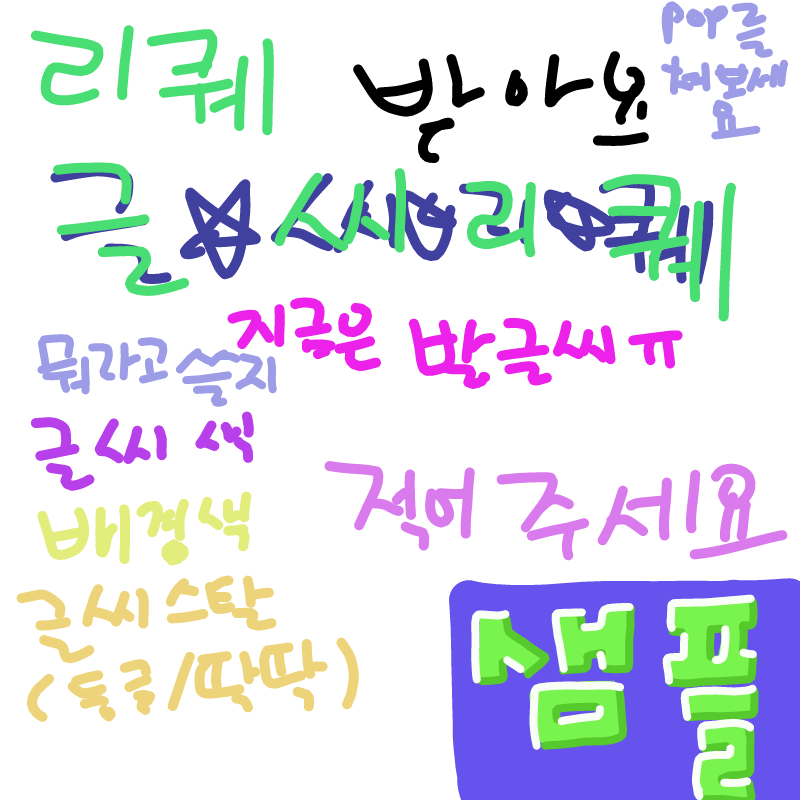 리퀘 받아요
pop를
쳐보세
요
글씨리퀘
지금은 발글씨ㅠ
뭐라고 쓸지
글씨 색
배경색
글씨 스탈
(둥글/딱딱)
적어 주세요
샘플